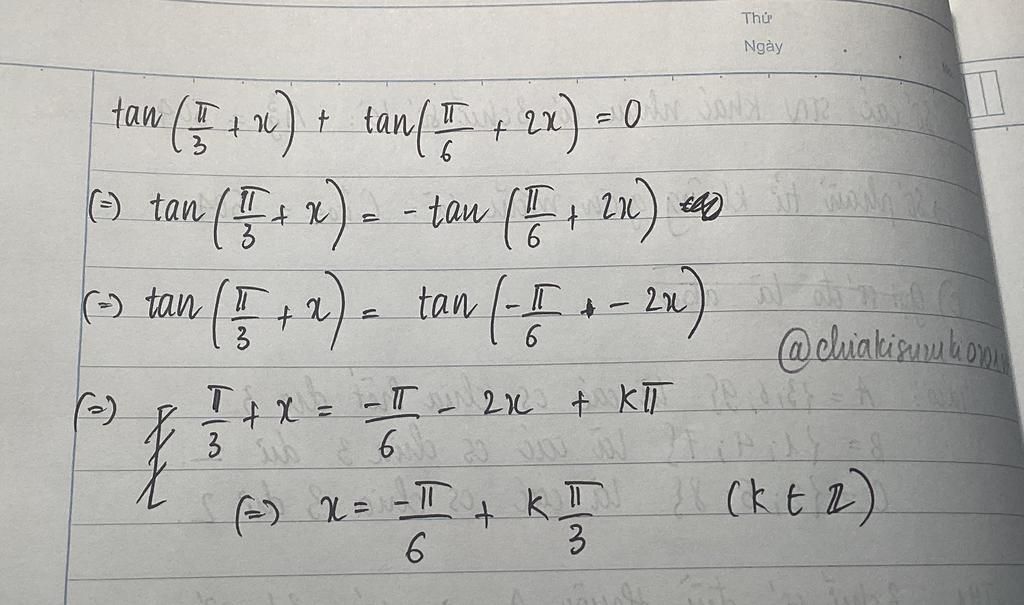 Thứ
Ngày
tan(π/3 + x) + tan(π/6 + 2x) = 0
(=) tan(π/3 + x) = -tan(π/6 + 2x)
(=) tan(π/3 + x) = tan(-π/6 - 2x)
(=) π/3 + x = -π/6 - 2x + kπ
(=) x = -π/6 + k π/3 (k ∈ Z)